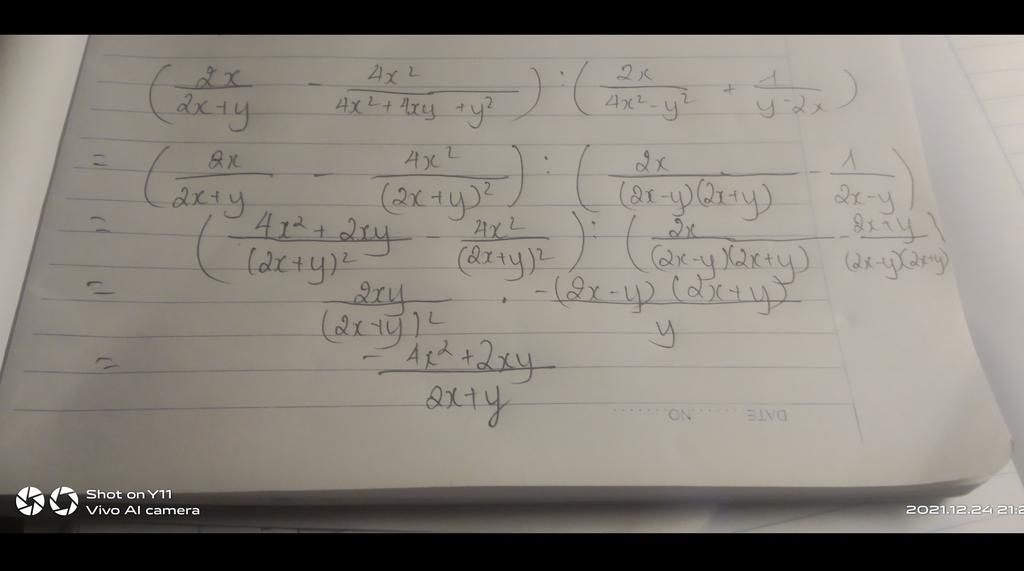 (2x/(2x+y) - 4x²/(4x²+4xy+y²)) : (2x/(4x²-y²) + 1/(y-2x))
= (2x/(2x+y) - 4x²/(2x+y)²) : (2x/((2x-y)(2x+y)) - 1/(2x-y))
= ((4x²+2xy)/(2x+y)² - 4x²/(2x+y)²) : (2x/((2x-y)(2x+y)) - (2x+y)/((2x-y)(2x+y)))
= 2xy/(2x+y)² . -(2x-y)(2x+y)/y
= -(4x²+2xy)/(2x+y)
DATE ...... NO ......
Shot on Y11
Vivo AI camera
2021.12.24 21:2